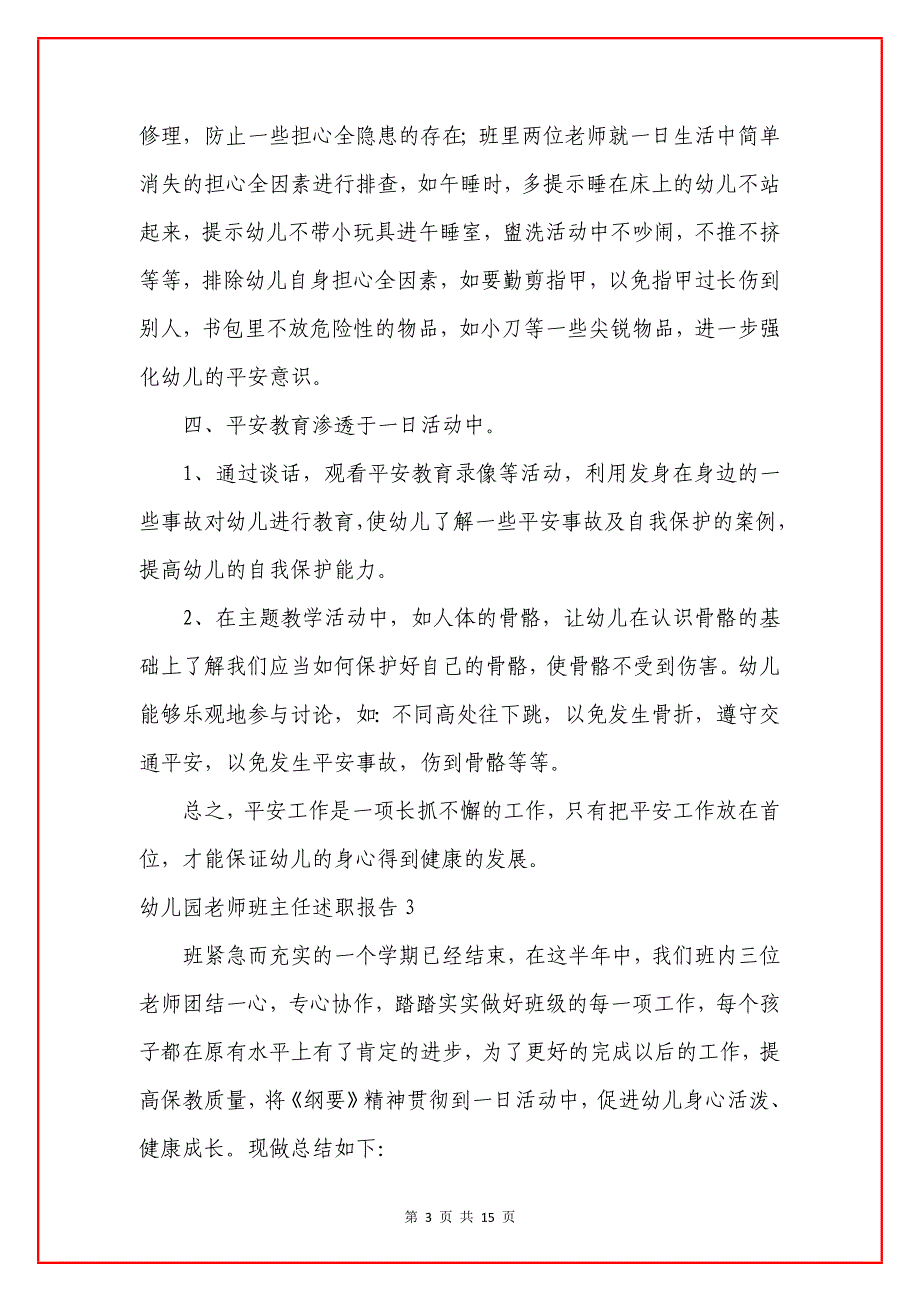 修理，防止一些担心全隐患的存在；班里两位老师就一日生活中简单
消失的担心全因素进行排查，如午睡时，多提示睡在床上的幼儿不站
起来，提示幼儿不带小玩具进午睡室，盥洗活动中不吵闹，不推不挤
等等，排除幼儿自身担心全因素，如要勤剪指甲，以免指甲过长伤到
别人，书包里不放危险性的物品，如小刀等一些尖锐物品，进一步强
化幼儿的平安意识。
四、平安教育渗透于一日活动中。
1、通过谈话，观看平安教育录像等活动，利用发身在身边的一
些事故对幼儿进行教育，使幼儿了解一些平安事故及自我保护的案例，
提高幼儿的自我保护能力。
2、在主题教学活动中，如人体的骨骼，让幼儿在认识骨骼的基
础上了解我们应当如何保护好自己的骨骼，使骨骼不受到伤害。幼儿
能够乐观地参与讨论，如：不同高处往下跳，以免发生骨折，遵守交
通平安，以免发生平安事故，伤到骨骼等等。
总之，平安工作是一项长抓不懈的工作，只有把平安工作放在首
位，才能保证幼儿的身心得到健康的发展。
幼儿园老师班主任述职报告 3
班紧急而充实的一个学期已经结束，在这半年中，我们班内三位
老师团结一心，专心协作，踏踏实实做好班级的每一项工作，每个孩
子都在原有水平上有了肯定的进步，为了更好的完成以后的工作，提
高保教质量，将《纲要》精神贯彻到一日活动中，促进幼儿身心活泼、
健康成长。现做总结如下：
第 3 页 共 15 页